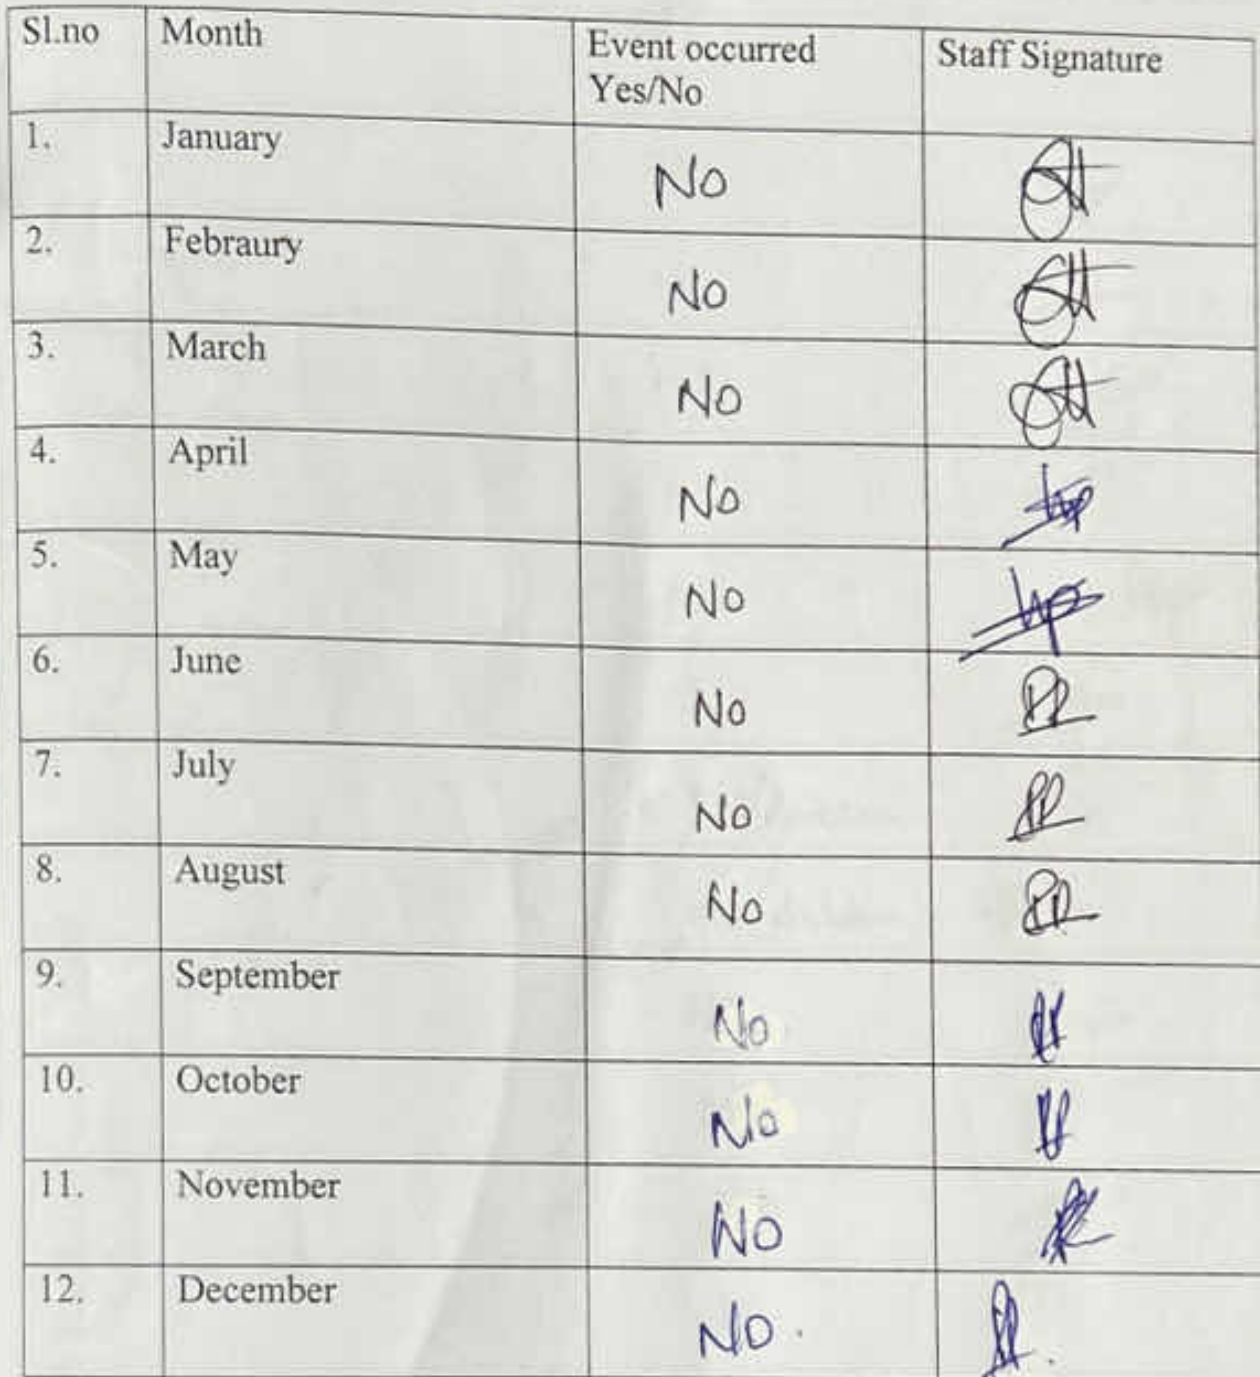 Sl.no Month Event occurred Staff Signature
Yes/No
1. January No
2. Febraury No
3. March No
4. April No
5. May No
6. June No
7. July No
8. August No
9. September No
10. October No
11. November No
12. December No.